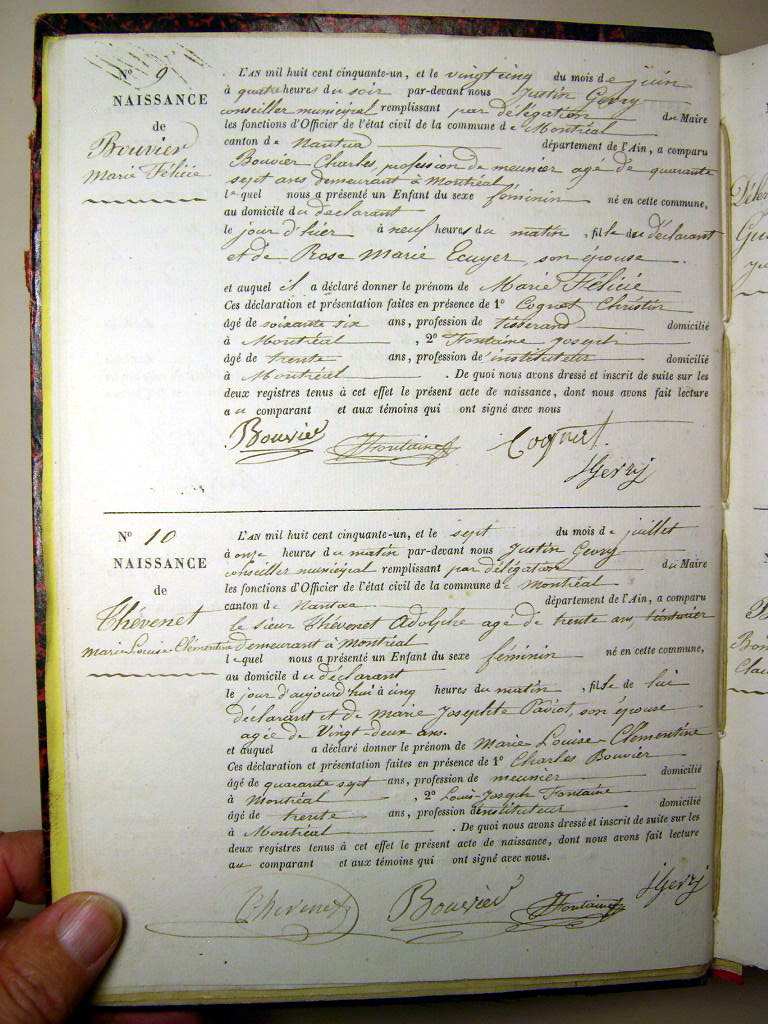 N° 9
NAISSANCE
de
Bouvier
Marie Félicie
L'AN mil huit cent cinquante-un, et le vingt cinq du mois de juin
à quatre heures du soir par-devant nous Justin Gevry
conseiller municipal remplissant par délégation du Maire
les fonctions d'Officier de l'état civil de la commune de Montréal
canton de Nantua département de l'Ain, a comparu
Bouvier Charles profession de meunier age de quarante
sept ans demeurant à Montréal
lequel nous a présenté un Enfant du sexe féminin né en cette commune,
au domicile du déclarant
le jour d'hier à neuf heures du matin, fille du déclarant
et de Rose Marie Ecuyer, son épouse.
et auquel il a déclaré donner le prénom de Marie Félicie
Ces déclaration et présentation faites en présence de 1° Cognet Christin
âgé de soixante six ans, profession de tisserand domicilié
à Montréal, 2° Fontaine joseph
âgé de trente ans, profession d'instituteur domicilié
à Montréal. De quoi nous avons dressé et inscrit de suite sur les
deux registres tenus à cet effet le présent acte de naissance, dont nous avons fait lecture
au comparant et aux témoins qui ont signé avec nous
Bouvier JFontaine Cognet.
JGevry
N° 10
NAISSANCE
de
Thévenet
Marie Louise Clémentine
L'AN mil huit cent cinquante-un, et le sept du mois de juillet
à onze heures du matin par-devant nous Justin Gevry
conseiller municipal remplissant par délégation du Maire
les fonctions d'Officier de l'état civil de la commune de Montréal
canton de Nantua département de l'Ain, a comparu
le sieur Thévenet Adolphe age de trente ans, teinturier
demeurant à Montréal
lequel nous a présenté un Enfant du sexe féminin né en cette commune,
au domicile du déclarant
le jour d'aujourd'hui à cinq heures du matin, fille de lui
déclarant et de Marie Josephte son épouse
agée de Vingt-deux ans.
et auquel a déclaré donner le prénom de Marie Louise Clémentine
Ces déclaration et présentation faites en présence de 1° Charles Bouvier
âgé de quarante sept ans, profession de meunier domicilié
à Montréal, 2° Louis-Joseph Fontaine
âgé de trente ans, profession d'instituteur domicilié
à Montréal. De quoi nous avons dressé et inscrit de suite sur les
deux registres tenus à cet effet le présent acte de naissance, dont nous avons fait lecture
au comparant et aux témoins qui ont signé avec nous.
Thevenet Bouvier JFontaine JGevry